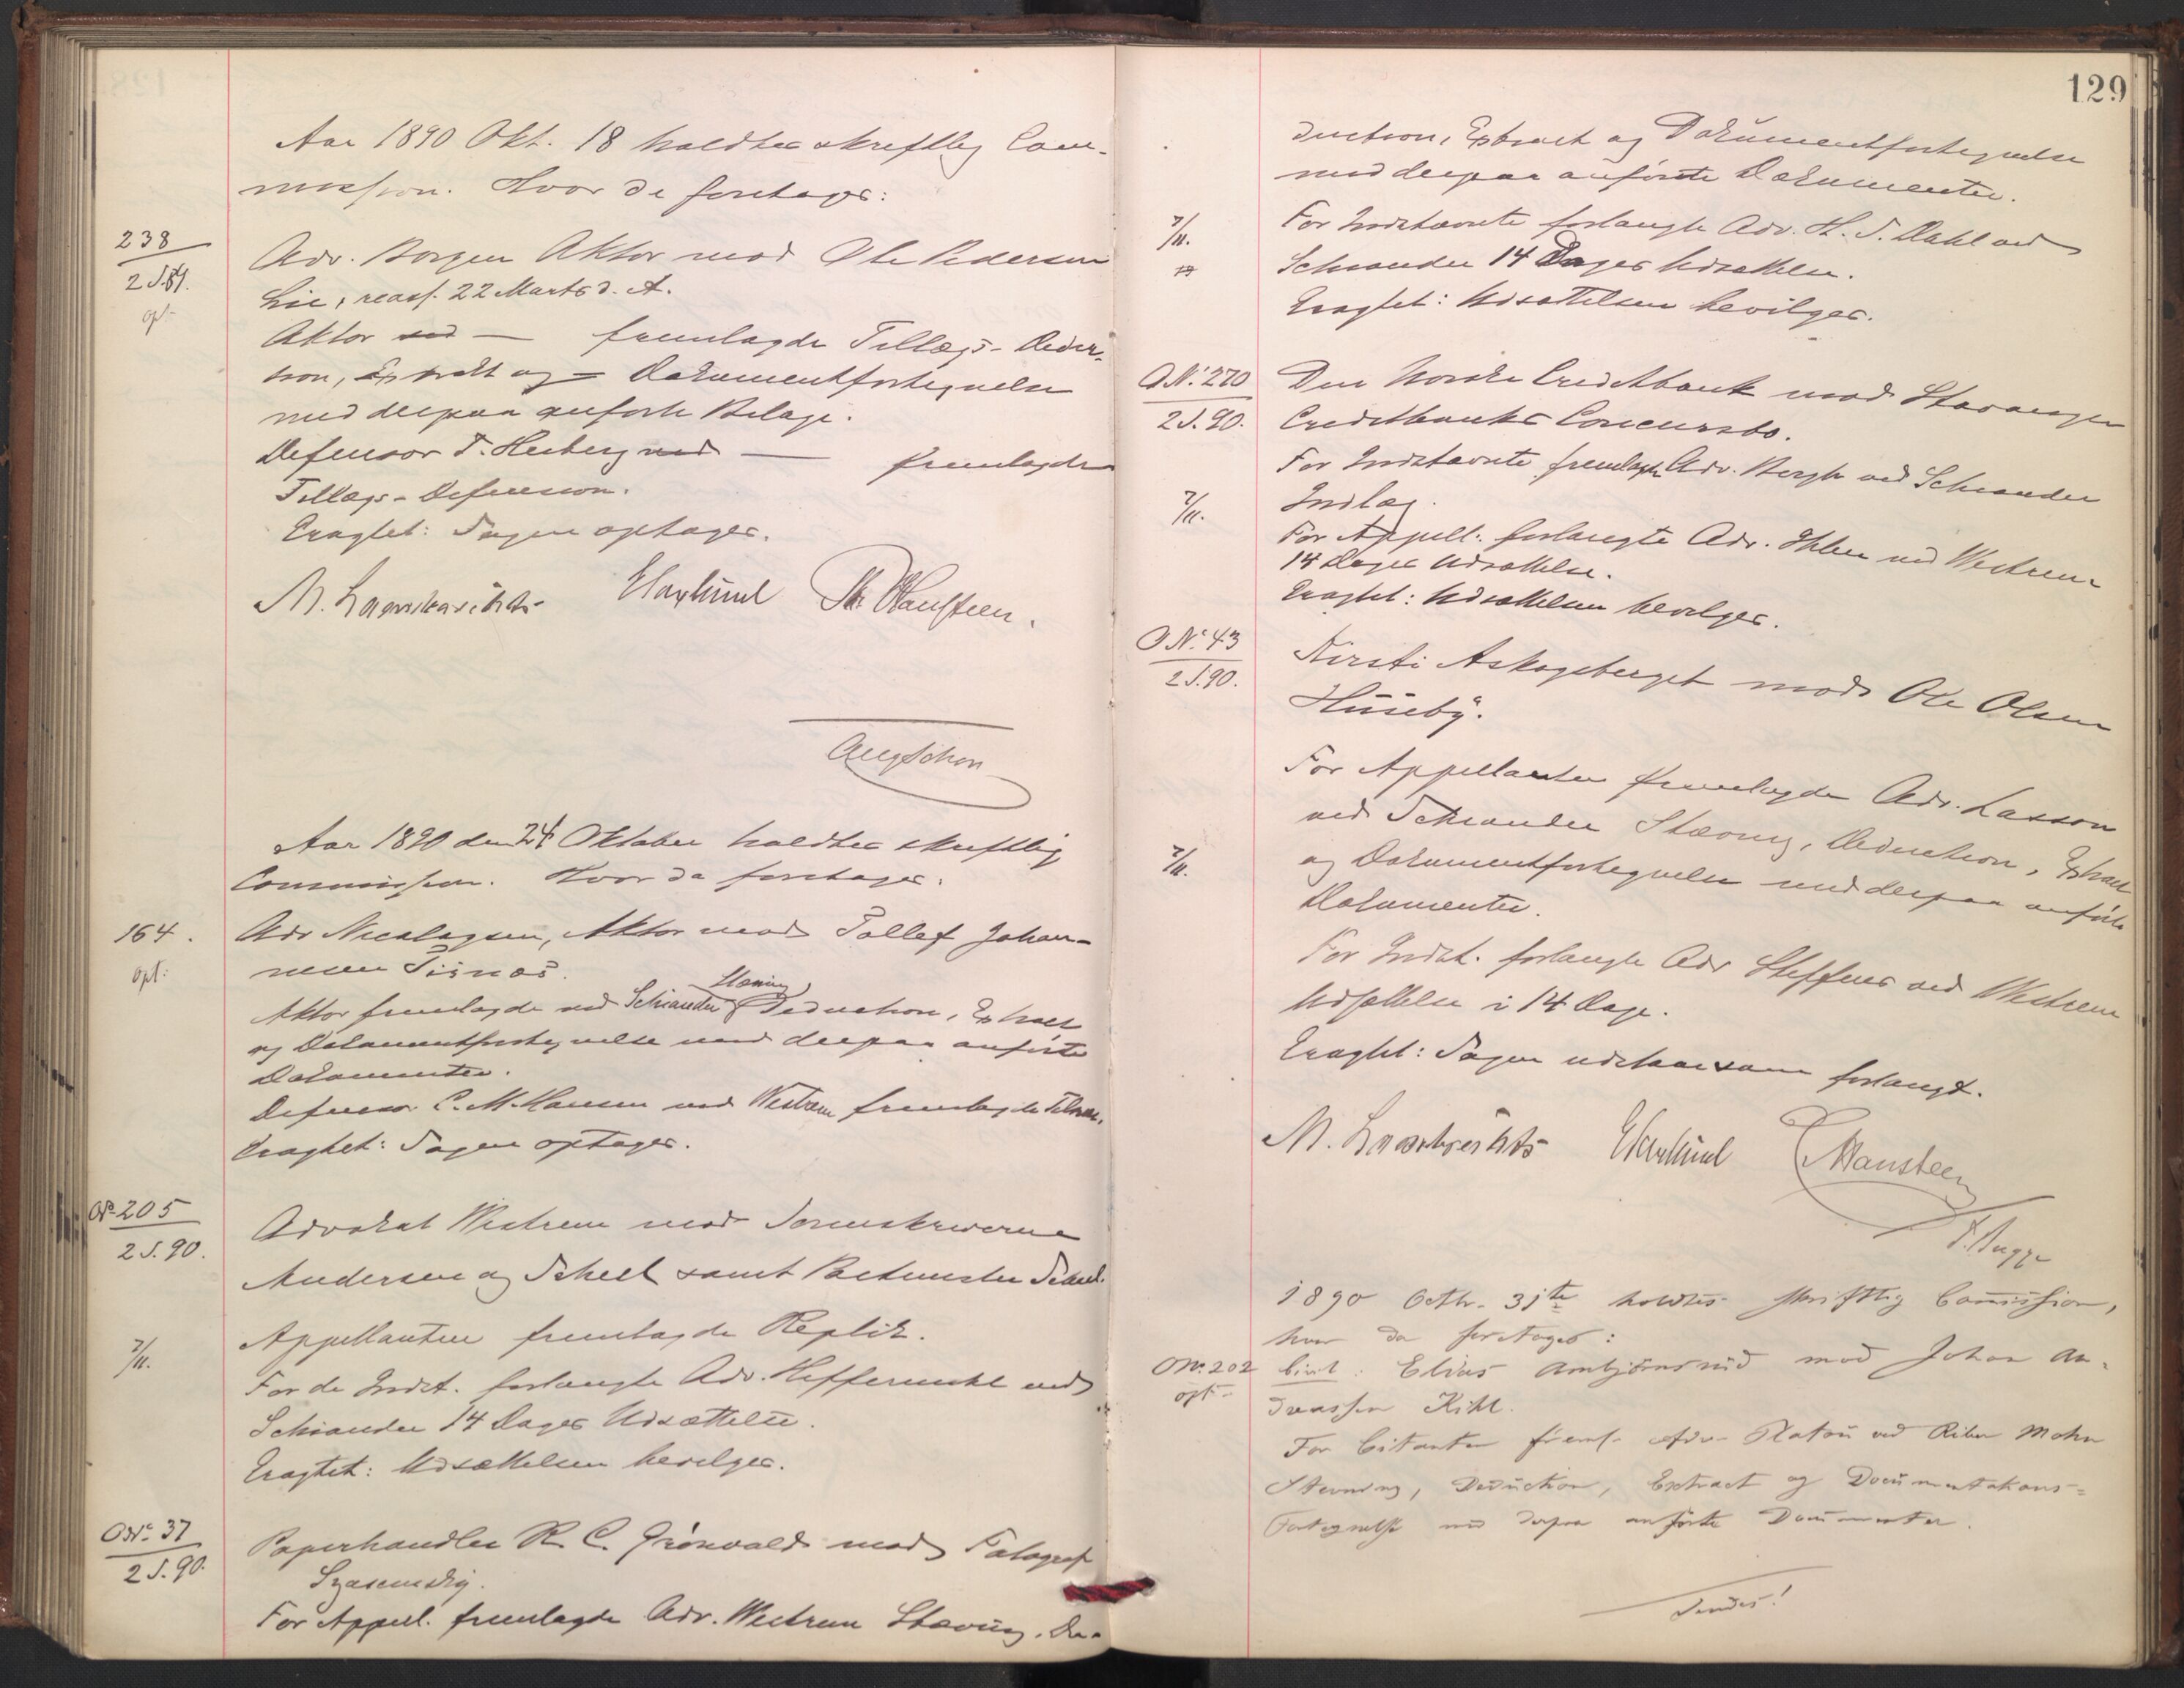 Aar 1890 Okt. 18 holdtes skriftlig Com-
mission. Hvor da foretages:
238
2 S. 89.
opt
Adv. Borgen Aktor mod Ole Pedersen
Lie, reass. 22 Marts d. A.
Aktor ved — fremlagde Tillægs-Deduc-
tion, Extrakt og Dokumentfortegnelse
med derpaa anførte Bilage.
Defensor T. Herberg ved — fremlagde
Tillægs-Defension.
Eragtet: Sagen optages.
Hansteen.
Aar 1890 den 24 Oktober holdtes skriftlig
Commission. Hvor da foretages:
164.
opt:
Adv Nicolaysen, Aktor mod Tollef Johan-
nesen
Stævning,
Aktor fremlagde ved Schiander Deduction, Extract
og Dokumentfortegnelse med derpaa anførte
Dokumenter.
Defensor C. M. Hansen ved Westrum fremlagde
Eragtet: Sagen optages.
O No 205
2 S. 90.
Advokat Westrum mod Sorenskriverne
Andersen og Scheel samt
7/11.
Appellanten fremlagde Replik.
For de Indst. forlangte Adv. Heffermehl ved
Schiander 14 Dages Udsættelse.
Eragtet: Udsættelsen bevilges.
O No 37
2 S. 90.
Papirhandler R. C. Grönvald mod Fotograf
For Appell. fremlagde Adv. Westrum Stævning, De-
129
duction, Extract og Dokumentfortegnelse
med derpaa anførte Dokumenter.
7/11.
For Indstævnte forlangte Adv. H. S. Dahl ved
Schiander 14 Dages Udsættelse.
Eragtet: Udsættelsen bevilges.
O No 270
2 S. 90.
Den Norske Creditbank mod Stavanger
Creditbanks Concursbo.
For Indstævnte fremlagde Adv. Bergh ved Schiander
7/11.
Indlæg.
For Appell. forlangte Adv. Ihlen ved Westrum
14 Dages Udsættelse.
Eragtet: Udsættelsen bevilges.
O No 43
2 S. 90.
Kirsti Askogsberget mod Ole Olsen
Huseby.
For Appellanten fremlagde Adv. Lasson
ved Schiander Stævning, Deduction, Extract
7/11.
og Dokumentfortegnelse med derpaa anførte
Dokumenter.
For Indst. forlangte Adv Steffens ved Westrum
Udsættelse i 14 Dage.
Eragtet: Sagen udstaar som forlangt.
Hansteen
F. Bugge
1890 Octbr. 31te holdtes skriftlig Commission,
hvor da foretages:
O No. 202
opt
Civil: Elias Ambjörnsrud mod Johan An-
dreassen Kihl.
For Citanten freml. Adv. Platou ved Riber Mohn
Stevning, Deduction, Extract og Documentations-
Fortegnelse med derpaa anførte Documenter.
Vendes!